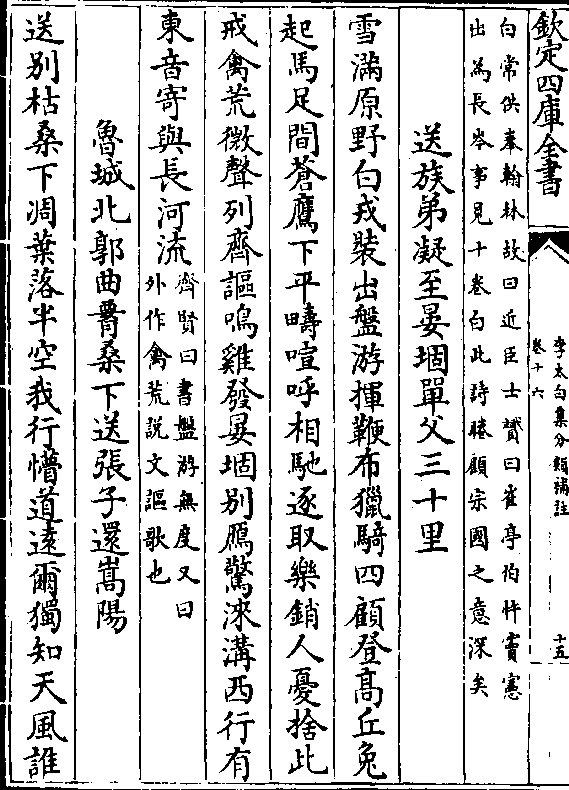 欽定四庫全書
李太白集分類補註
卷十六
十五
白常供奉翰林故曰近臣士贇曰崔亭伯忤竇憲
出為長岑事見十卷白此詩睠顧宗國之意深矣
送族弟凝至晏堌單父三十里
雪滿原野白戎裝出盤游揮鞭布獵騎四顧登髙丘兔
起馬足間蒼鷹下平疇喧呼相馳逐取樂銷人憂捨此
戒禽荒微聲列齊謳鳴雞發晏堌别鴈驚淶溝西行有
東音寄與長河流
齊賢曰書盤游無度又曰
外作禽荒説文謳歌也
魯城北郭曲腰桑下送張子還嵩陽
送别枯桑下凋葉落半空我行懵道逺爾獨知天風誰